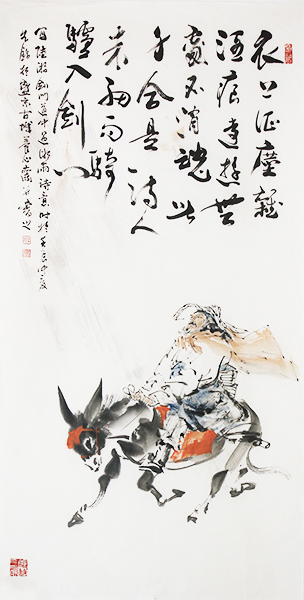 衣上征塵雜
酒痕遠遊無
處不消魂此
身合是詩人
未細雨騎
驢入劍門
寫陸游劍門道中遇微雨詩意時在壬辰仲夏
於盛京古城